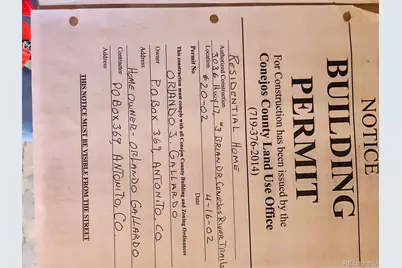 NOTICE
BUILDING
PERMIT
For Construction has been issued by the
Conejos County Land Use Office
(719-376-2014)
RESIDENTIAL HOME
Authorized Construction
3036 Hwy 17, #3 BRIAN DR, CONEJOS RIVER TRAILS
Location
#20-02 4-16-02
Permit No Date
This construction must comply with all Conejos County Building and Zoning Ordinances
ORLANDO J. GALLARDO
Owner
PO BOX 369 ANTONITO, CO
Address
HOME OWNER - ORLANDO GALLARDO
Contractor
PO BOX 369, ANTONITO, CO.
Address
THIS NOTICE MUST BE VISIBLE FROM THE STREET